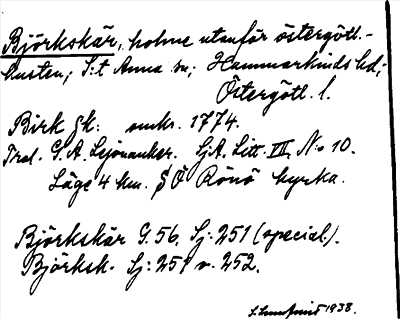 Björkskär, holme utanför östergötl.-
kusten; S:t Anna sn; Hammarkinds hd;
Östergötl. l.
Birk sk: omkr. 1774.
Trol. G. A. Lejonanker. SjA. Litt. III. N:o 10.
Läge 4 km. SÖ Rönö kyrka.
Björkskär G. 56. Sj: 251 (special.).
Björksk. Sj: 251 o. 252.
1938.